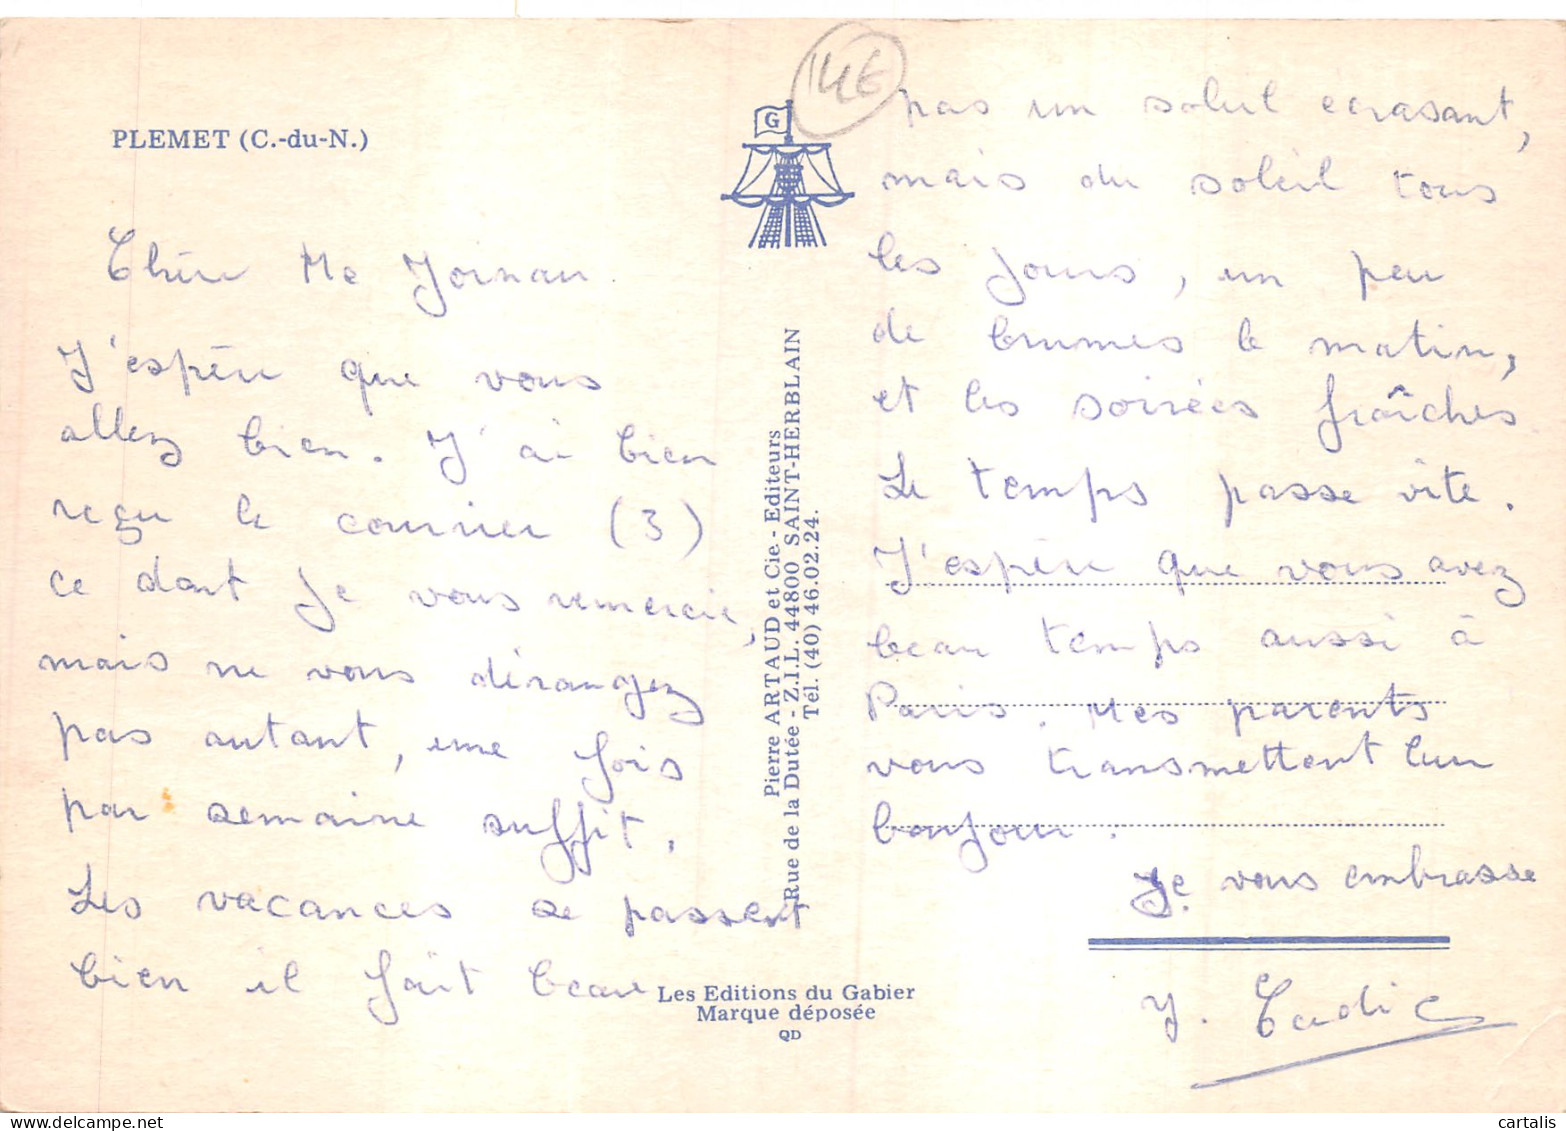 PLEMET (C.-du-N.)
Chère Me
J'espère que vous
allez bien. J'ai bien
reçu le courrier (3)
ce dont je vous remercie,
mais ne vous dérangez
pas autant, une fois
par semaine suffit.
Les vacances se passent
bien il fait beau
G
Pierre ARTAUD et Cie - Editeurs
Rue de la Dutée - Z.I.L. 44800 SAINT-HERBLAIN
Tél. (40) 46.02.24.
Les Editions du Gabier
Marque déposée
QD
14E
pas un soleil écrasant,
mais du soleil tous
les jours, un peu
de brumes le matin,
et les soirées fraîches
Le temps passe vite.
J'espère que vous avez
beau temps aussi à
Paris. Mes parents
vous transmettent leur
bonjour.
Je vous embrasse
Y. Cadic
cartalis
www.delcampe.net